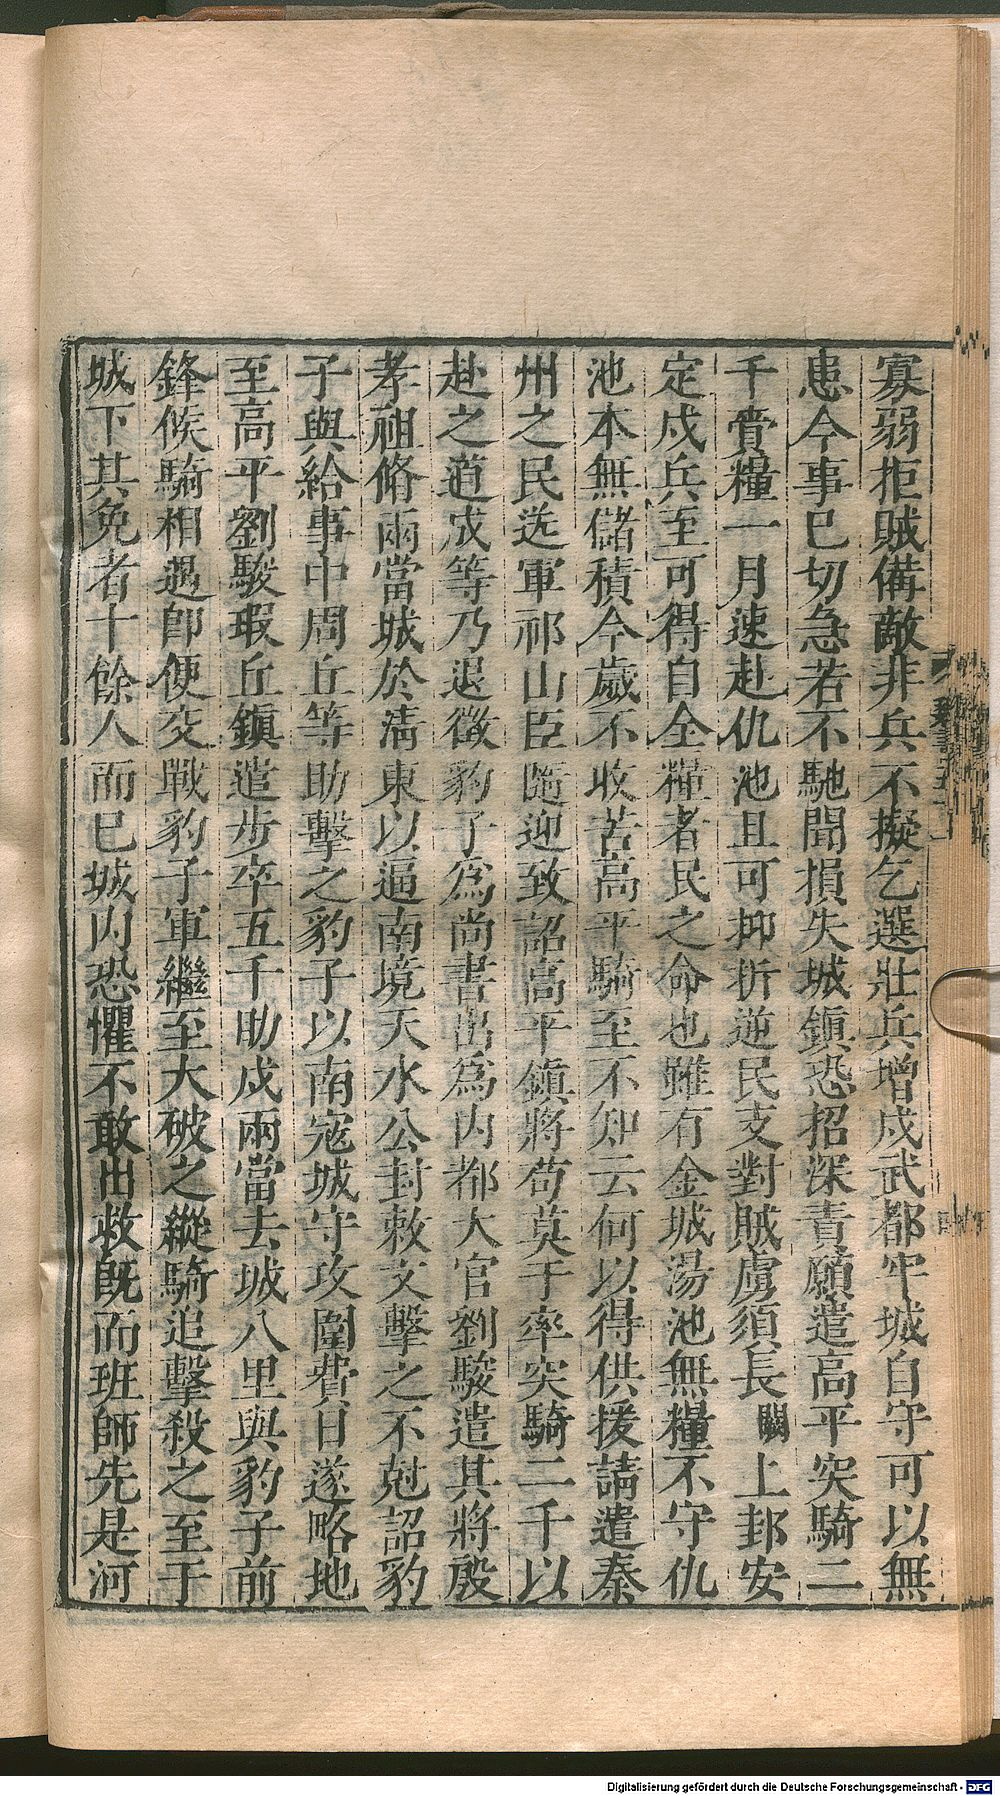 寡弱拒賊備敵非兵不擬乞選壯兵增戍武都牢城自守可以無
患今事已切急若不馳聞損失城鎮恐招深責願遣高平突騎二
千賫糧一月速赴仇池且可抑折逆民支對賊虜須長闕上邽安
定戍兵至可得自全糧者民之命也雖有金城湯池無糧不守仇
池本無儲積今歲不收苦高平騎至不知云何以得供援請遣秦
州之民送軍祁山臣隨迎致詔高平鎮將苟莫于率突騎二千以
赴之道成等乃退徵豹子為尚書出為內都大官劉駿遣其將殷
孝祖脩兩當城於清東以逼南境天水公封敕文擊之不剋詔豹
子與給事中周丘等助擊之豹子以南寇城守攻圍費日遂略地
至高平劉駿瑕丘鎮遣步卒五千助戍兩當去城八里與豹子前
鋒候騎相遇即便交戰豹子軍繼至大破之縱騎追擊殺之至于
城下其免者十餘人而已城內恐懼不敢出救既而班師先是河
Digitalisierung gefördert durch die Deutsche Forschungsgemeinschaft - DFG